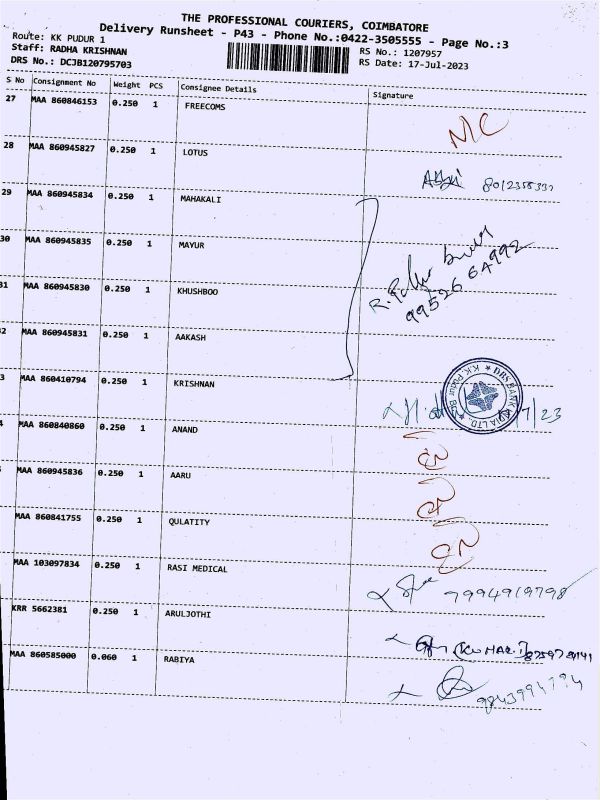 THE PROFESSIONAL COURIERS, COIMBATORE
Delivery Runsheet - P43 - Phone No.:0422-3505555 - Page No.:3
Route: KK PUDUR 1
Staff: RADHA KRISHNAN
DRS No.: DCJB120795703
RS No.: 1207957
RS Date: 17-Jul-2023
S No Consignment No Weight PCS Consignee Details Signature
27 MAA 860846153 0.250 1 FREECOMS NC
28 MAA 860945827 0.250 1 LOTUS
29 MAA 860945834 0.250 1 MAHAKALI
30 MAA 860945835 0.250 1 MAYUR
31 MAA 860945830 0.250 1 KHUSHBOO
2 MAA 860945831 0.250 1 AAKASH
3 MAA 860410794 0.250 1 KRISHNAN
4 MAA 860840860 0.250 1 ANAND
MAA 860945836 0.250 1 AARU
MAA 860841755 0.250 1 QULATITY
MAA 103097834 0.250 1 RASI MEDICAL 7994919798
KRR 5662381 0.250 1 ARULJOTHI
MAA 860585000 0.060 1 RABIYA